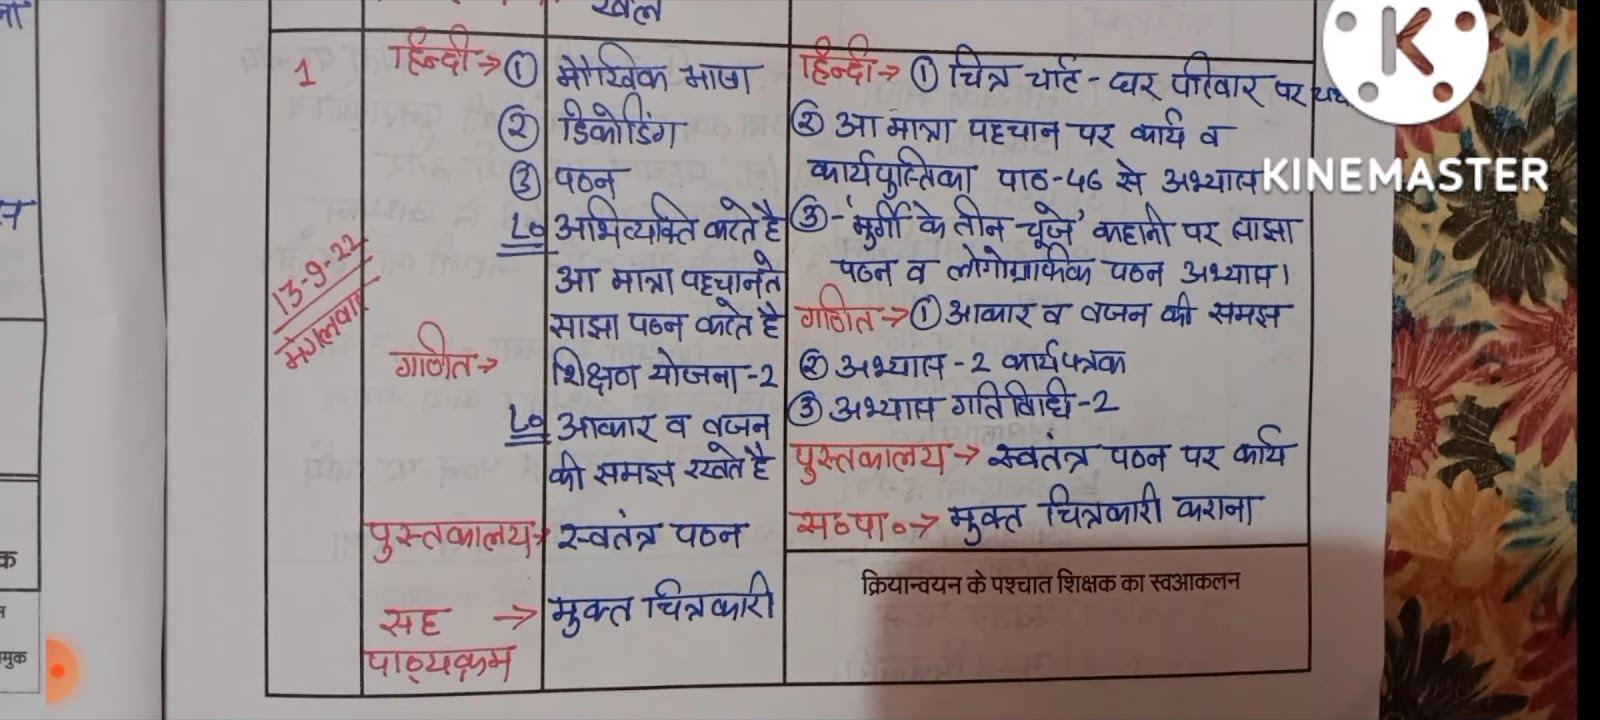 खेल
1
13-9-22
मंगलवार
हिन्दी → ① मौखिक भाषा
② डिकोडिंग
③ पठन
Lo अभिव्यक्ति करते है
आ मात्रा पहचानते
साझा पठन करते है
गणित → शिक्षण योजना -2
Lo आकार व वजन
की समझ रखते है
पुस्तकालय → स्वतंत्र पठन
सह → मुक्त चित्रकारी
पाठ्यक्रम
हिन्दी → ① चित्र चार्ट - घर परिवार पर
② आ मात्रा पहचान पर कार्य व
कार्यपुस्तिका पाठ-46 से अभ्यास
③ - 'मुर्गी के तीन चूजे' कहानी पर साझा
पठन व लोगोग्राफिक पठन अभ्यास।
गणित → ① आकार व वजन की समझ
② अभ्यास -2 कार्यपत्रक
③ अभ्यास गतिविधि-2
पुस्तकालय → स्वतंत्र पठन पर कार्य
स०पा० → मुक्त चित्रकारी कराना
क्रियान्वयन के पश्चात शिक्षक का स्वआकलन
K
KINEMASTER